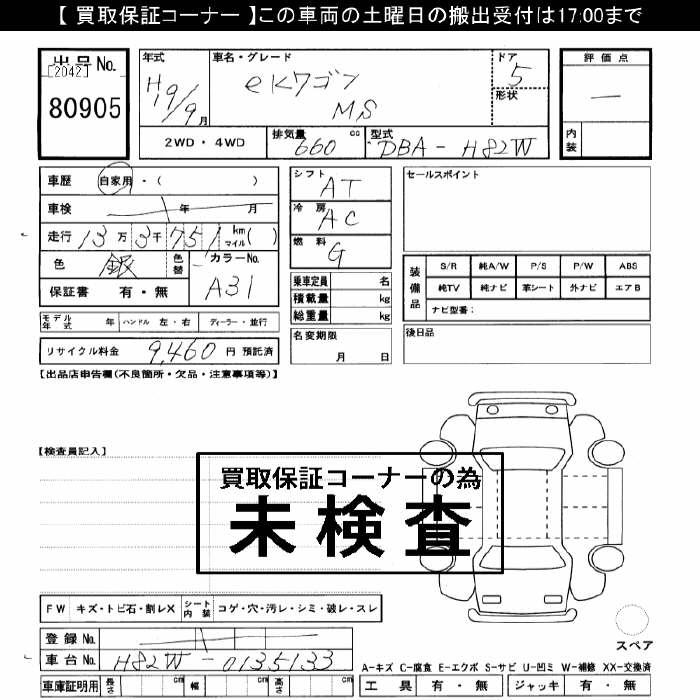 【 買取保証コーナー 】この車両の土曜日の搬出受付は17:00まで
出品No. 年式 車名・グレード ドア 評価点
[2042] H19/9月 eKワゴン MS 5 形状 —
80905 内装
2WD・4WD 排気量 660 cc 型式 DBA-H82W
車歴 自家用・( ) シフト AT セールスポイント
車検 年 月 冷房 AC
走行 13万3千751 km マイル( ) 燃料 G
色 銀 色替 カラーNo. A31
保証書 有・無
乗車定員 名
積載量 kg
総重量 kg
装備品 S/R 純A/W P/S P/W ABS
純TV 純ナビ 革シート 外ナビ エアB
ナビ型番:
モデル年式 年 ハンドル 左・右 ディーラー・並行
名変期限 月 日
後日品
リサイクル料金 9,460 円 預託済
【出品店申告欄(不良箇所・欠品・注意事項等)】
【検査員記入】
買取保証コーナーの為
未検査
FW キズ・トビ石・割レX シート内装 コゲ・穴・汚レ・シミ・破レ・スレ
登録No.
スペア
車台No. H82W-0135133
A-キズ C-腐食 E-エクボ S-サビ U-凹ミ W-補修 XX-交換済
車庫証明用 長さ cm 幅 cm 高さ cm 工具 有・無 ジャッキ 有・無